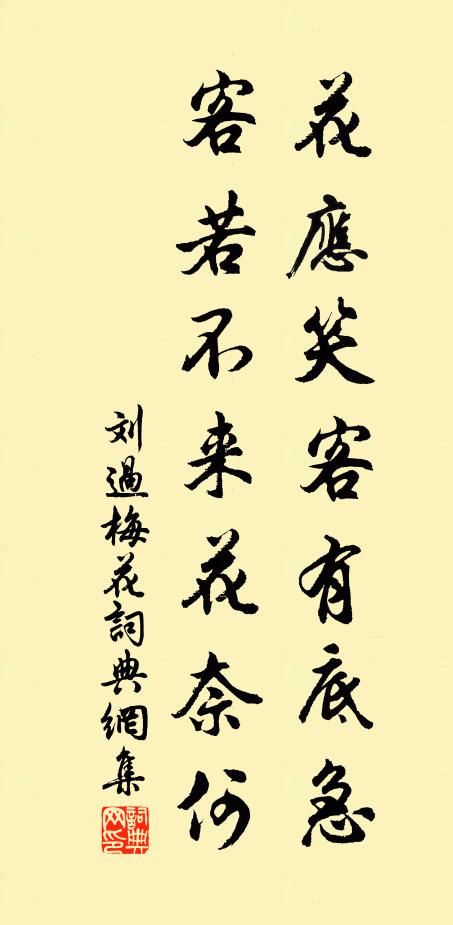 花應笑客有底急
客若不来花奈何
刘過梅花詞典網集
詞典
网印